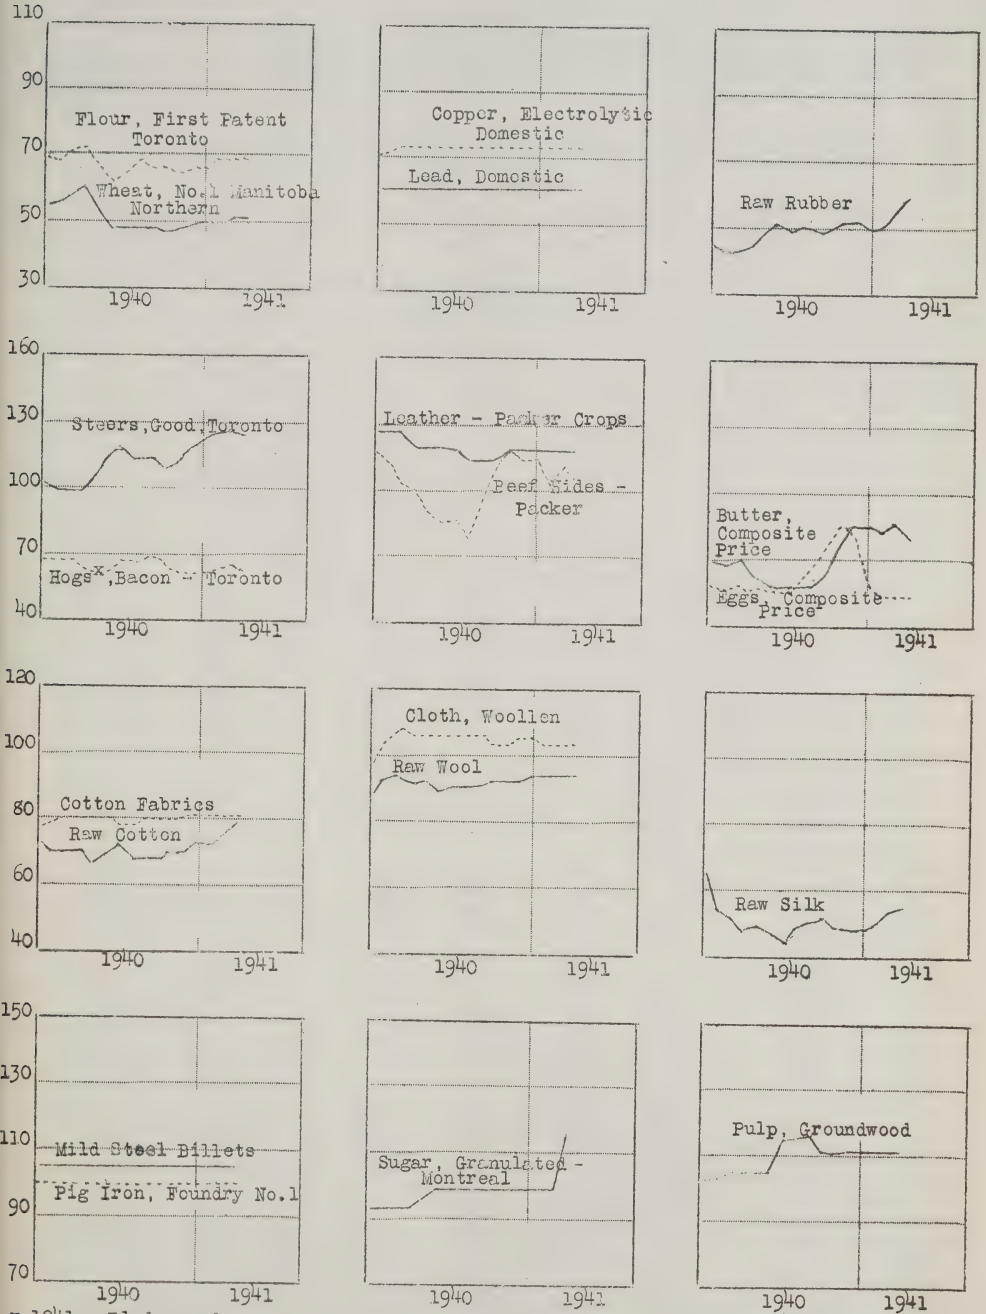 110
90
70
50
30
Flour, First Patent
Toronto
Wheat, No.1 Manitoba
Northern
1940
1941
Copper, Electrolytic
Domestic
Lead, Domestic
1940
1941
Raw Rubber
1940
1941
160
130
100
70
40
Steers,Good,Toronto
Hogsx,Bacon - Toronto
1940
1941
Leather - Packer Crops
Beef Hides -
Packer
1940
1941
Butter,
Composite
Price
Eggs, Composite
Price
1940
1941
120
100
80
60
40
Cotton Fabrics
Raw Cotton
1940
1941
Cloth, Woollen
Raw Wool
1940
1941
Raw Silk
1940
1941
150
130
110
90
70
Mild Steel Billets
Pig Iron, Foundry No.1
1940
1941
Sugar, Granulated -
Montreal
1940
1941
Pulp, Groundwood
1940
1941
1941